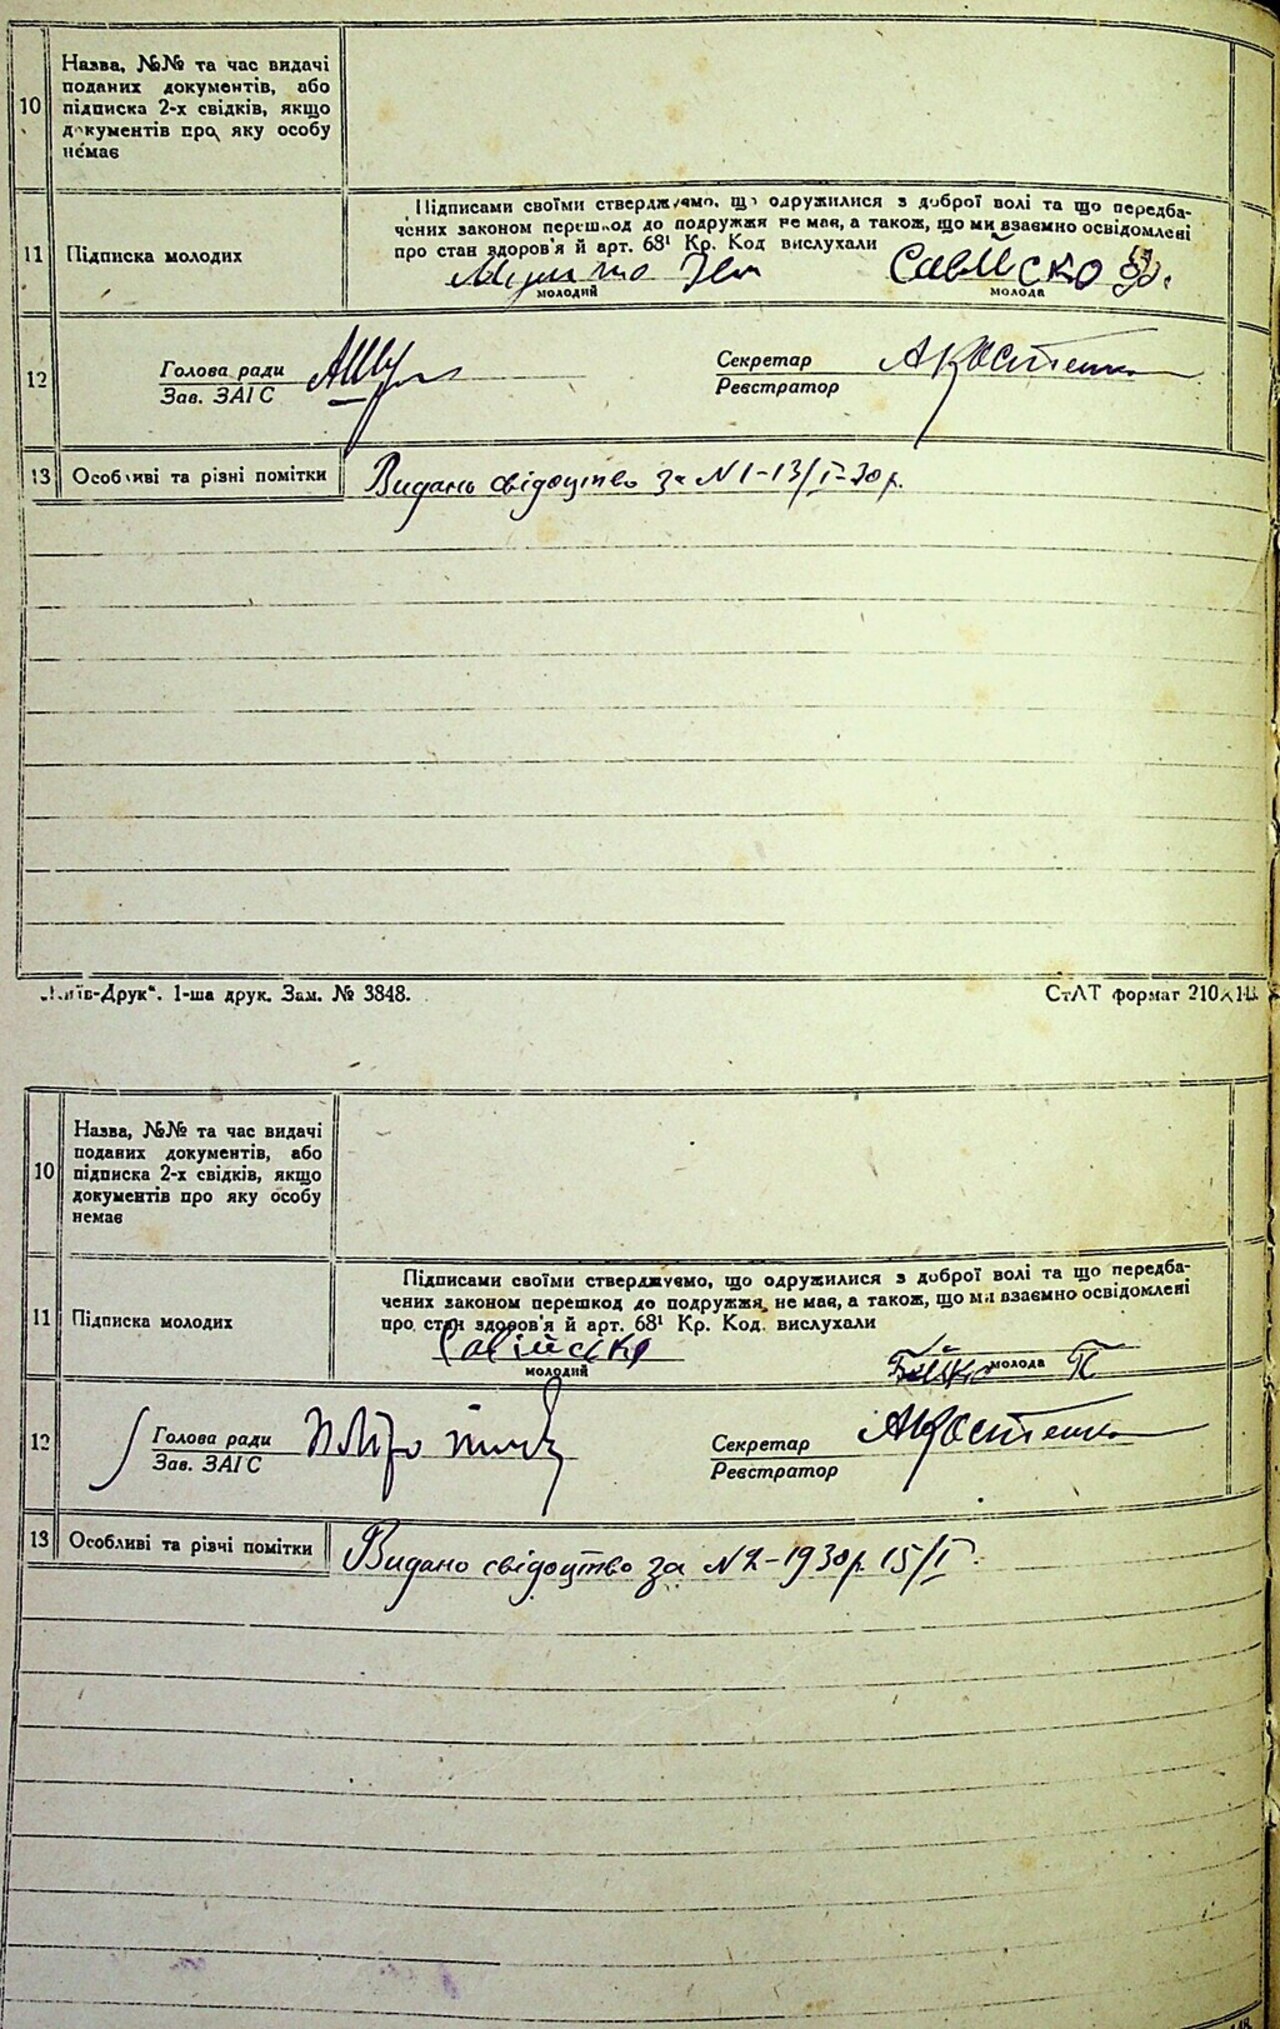 10
Назва, №№ та час видачі
поданих документів, або
підписка 2-х свідків, якщо
документів про яку особу
немає
11
Підписка молодих
Підписами своїми стверджуємо, що одружилися з доброї волі та що передба-
чених законом перешкод до подружжя не має, а також, що ми взаємно освідомлені
про стан здоров'я й арт. 68¹ Кр. Код вислухали
Савійсько
молодий
молода
12
Голова ради
Зав. ЗАГС
Секретар
Реєстратор
АКостенко
13
Особливі та різні помітки
Видано свідоцтво за N 1-13/I-30 р.
„Київ-Друк“. 1-ша друк. Зам. № 3848.
СтАТ формат 210
10
Назва, №№ та час видачі
поданих документів, або
підписка 2-х свідків, якщо
документів про яку особу
немає
11
Підписка молодих
Підписами своїми стверджуємо, що одружилися з доброї волі та що передба-
чених законом перешкод до подружжя не має, а також, що ми взаємно освідомлені
про стан здоров'я й арт. 68¹ Кр. Код. вислухали
Савійсько
молодий
молода
12
Голова ради
Зав. ЗАГС
Секретар
Реєстратор
АКостенко
13
Особливі та різчі помітки
Видано свідоцтво за N 2-1930 р. 15/I.